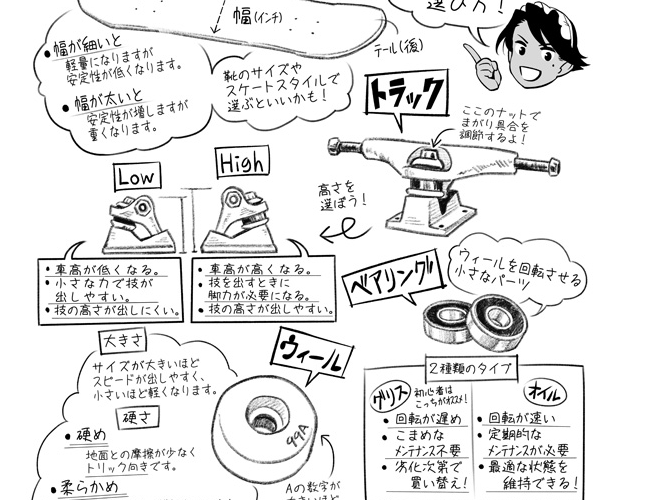 選び方！
幅（インチ）
テール（後）
・幅が細いと
軽量になりますが
安定性が低くなります。
・幅が太いと
安定性が増しますが
重くなります。
靴のサイズや
スケートスタイルで
選ぶといいかも！
トラック
ここのナットで
まがり具合を
調節するよ！
高さを
選ぼう！
Low
・車高が低くなる。
・小さな力で技が
出しやすい。
・技の高さが出しにくい。
High
・車高が高くなる。
・技を出すときに
脚力が必要になる。
・技の高さが出しやすい。
ベアリング
ウィールを回転させる
小さなパーツ
2種類のタイプ
グリス
初心者は
こっちがオススメ！
・回転が遅め
・こまめな
メンテナンス不要
・劣化次第で
買い替え！
オイル
・回転が速い
・定期的な
メンテナンスが必要
・最適な状態を
維持できる！
ウィール
大きさ
サイズが大きいほど
スピードが出しやすく、
小さいほど軽くなります。
硬さ
・硬め
地面との摩擦が少なく
トリック向きです。
・柔らかめ
99A
Aの数字が
大きいほど